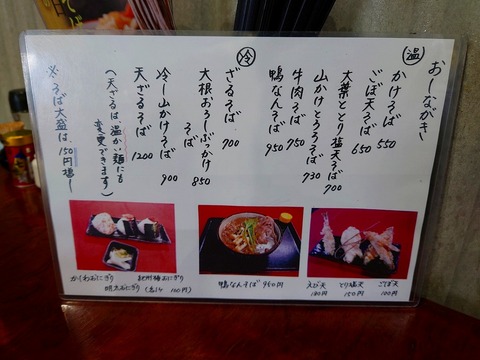 おしながき
温
かけそば 550
ごぼ天そば 650
大葉ととり塩天そば 700
山かけとろろそば 730
牛肉そば 750
鴨なんそば 950
冷
ざるそば 700
大根おろしぶっかけ
そば 850
冷し山かけそば 900
天ざるそば 1200
(天ざるは、温かい麺にも
変更できます)
※そば大盛は、150円増し
かしわおにぎり
紀州梅おにぎり
明太おにぎり
鴨なんそば 950円
えび天
180円
とり塩天
150円
ごぼ天
100円